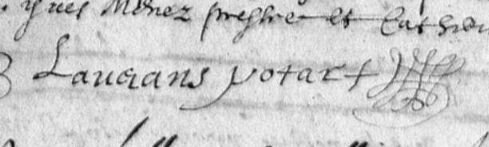 yves Menez presbtre et Cathe
Laurans potart